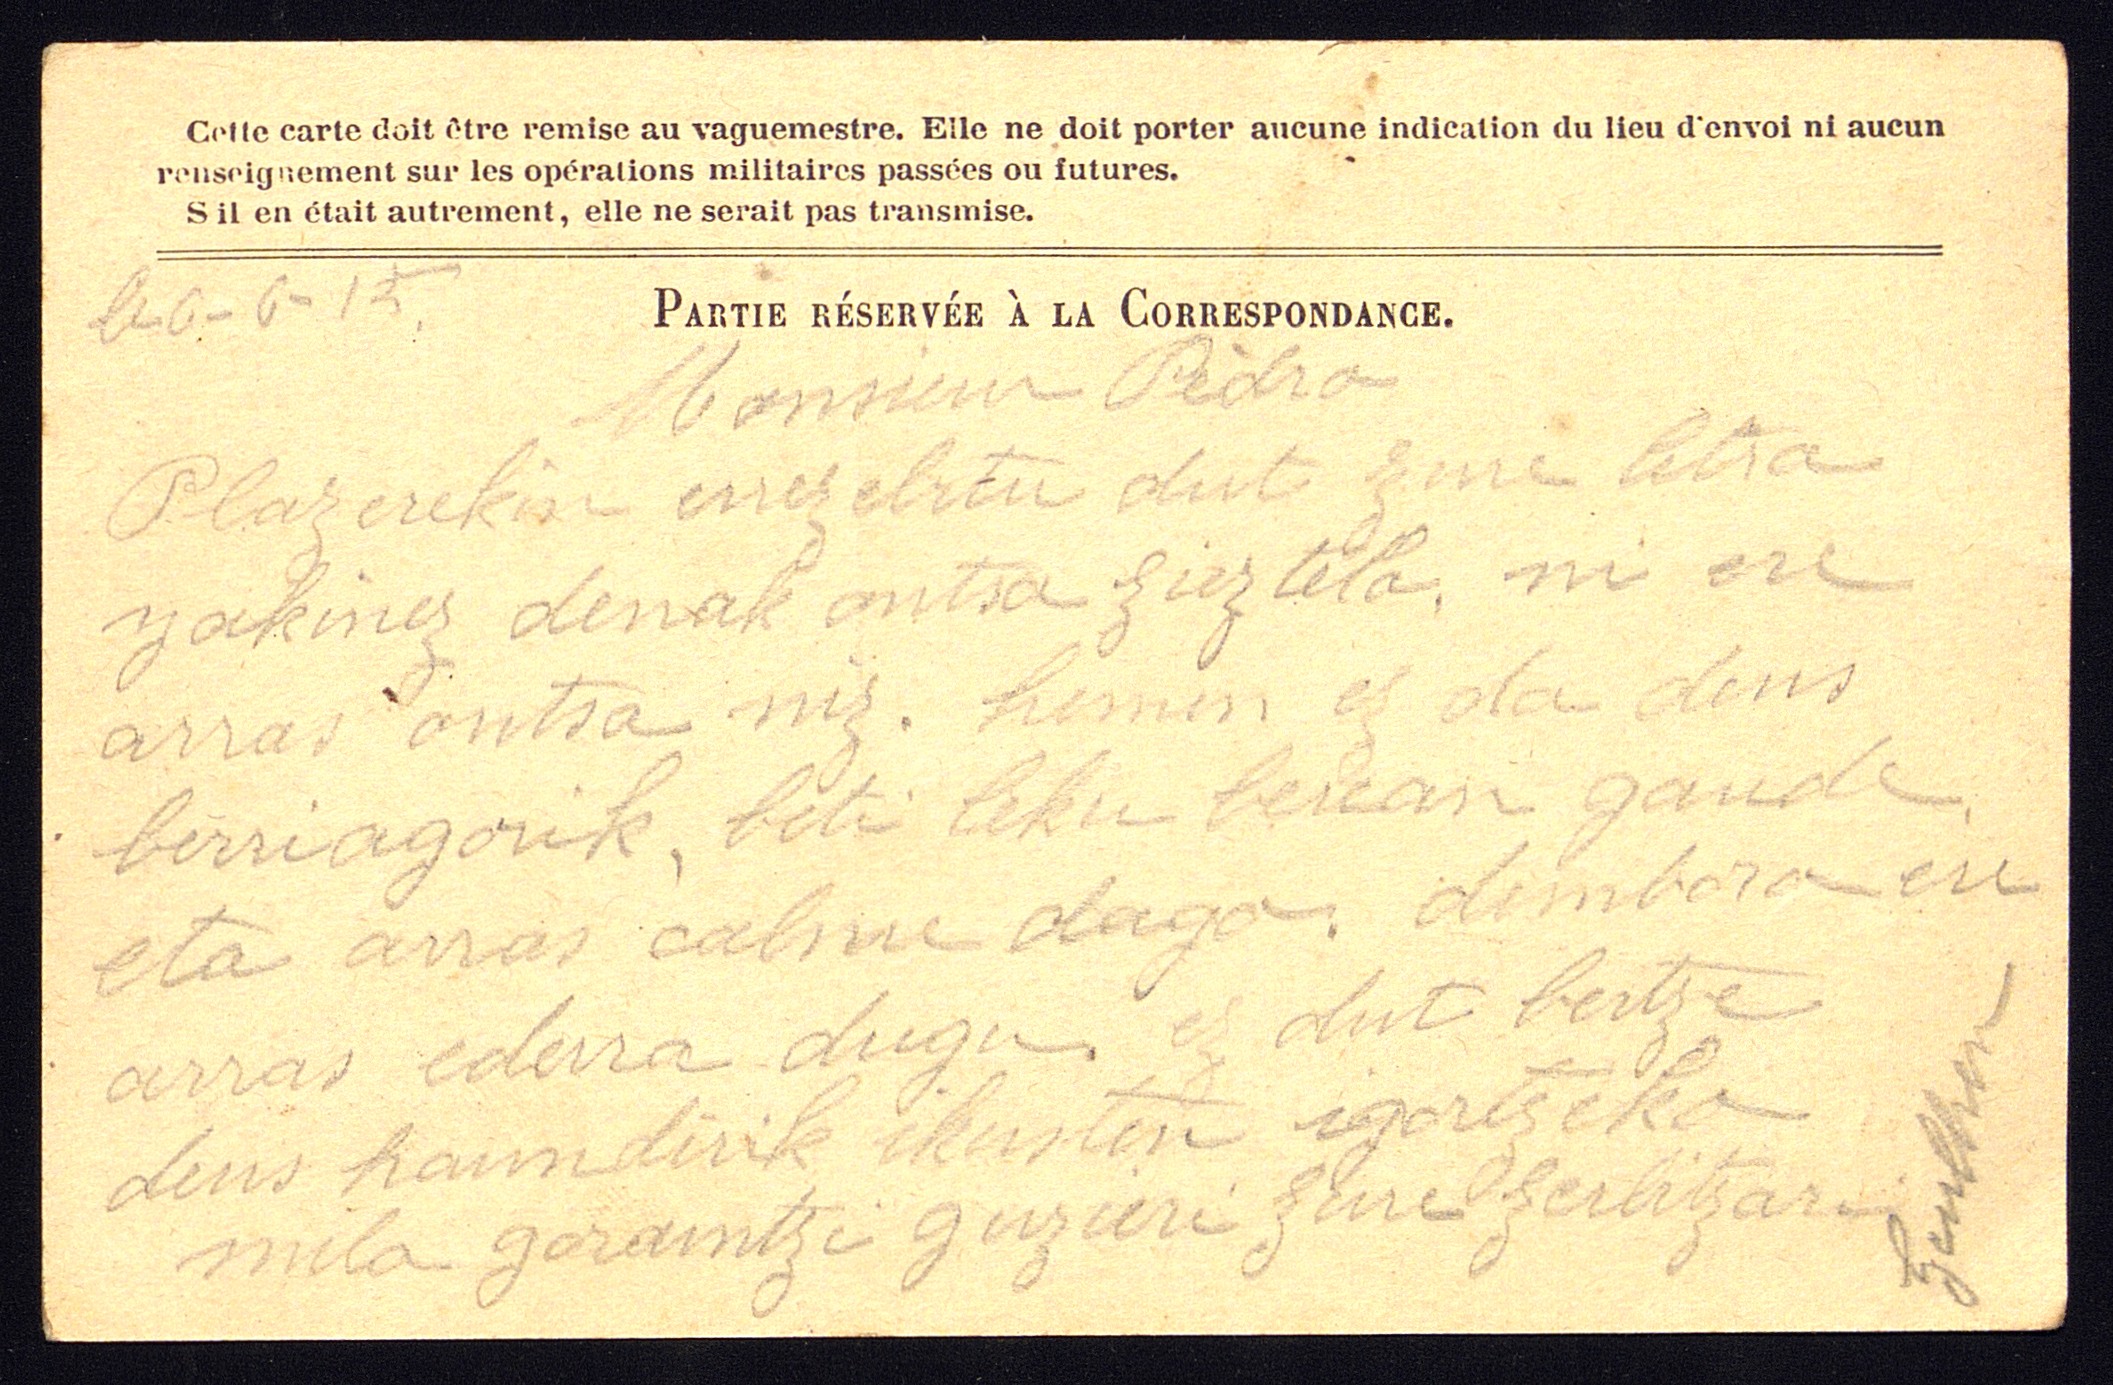 Cette carte doit être remise au vaguemestre. Elle ne doit porter aucune indication du lieu d'envoi ni aucun
renseignement sur les opérations militaires passées ou futures.
S'il en était autrement, elle ne serait pas transmise.
PARTIE RÉSERVÉE À LA CORRESPONDANCE.
6-15.
Monsieur Pèdro
Plazerekin errezebitu dut zure letra
yakinez denak ontsa zieztela, ni ere
arras ontsa niz. hemen ez da deus
berriagorik, beti leku berean gaude,
eta arras calme dago. dembora ere
arras ederra dugu. ez dut bertze
deus haundirik ikusten igortzeko
mila goraintzi guzieri zure zerbitzari